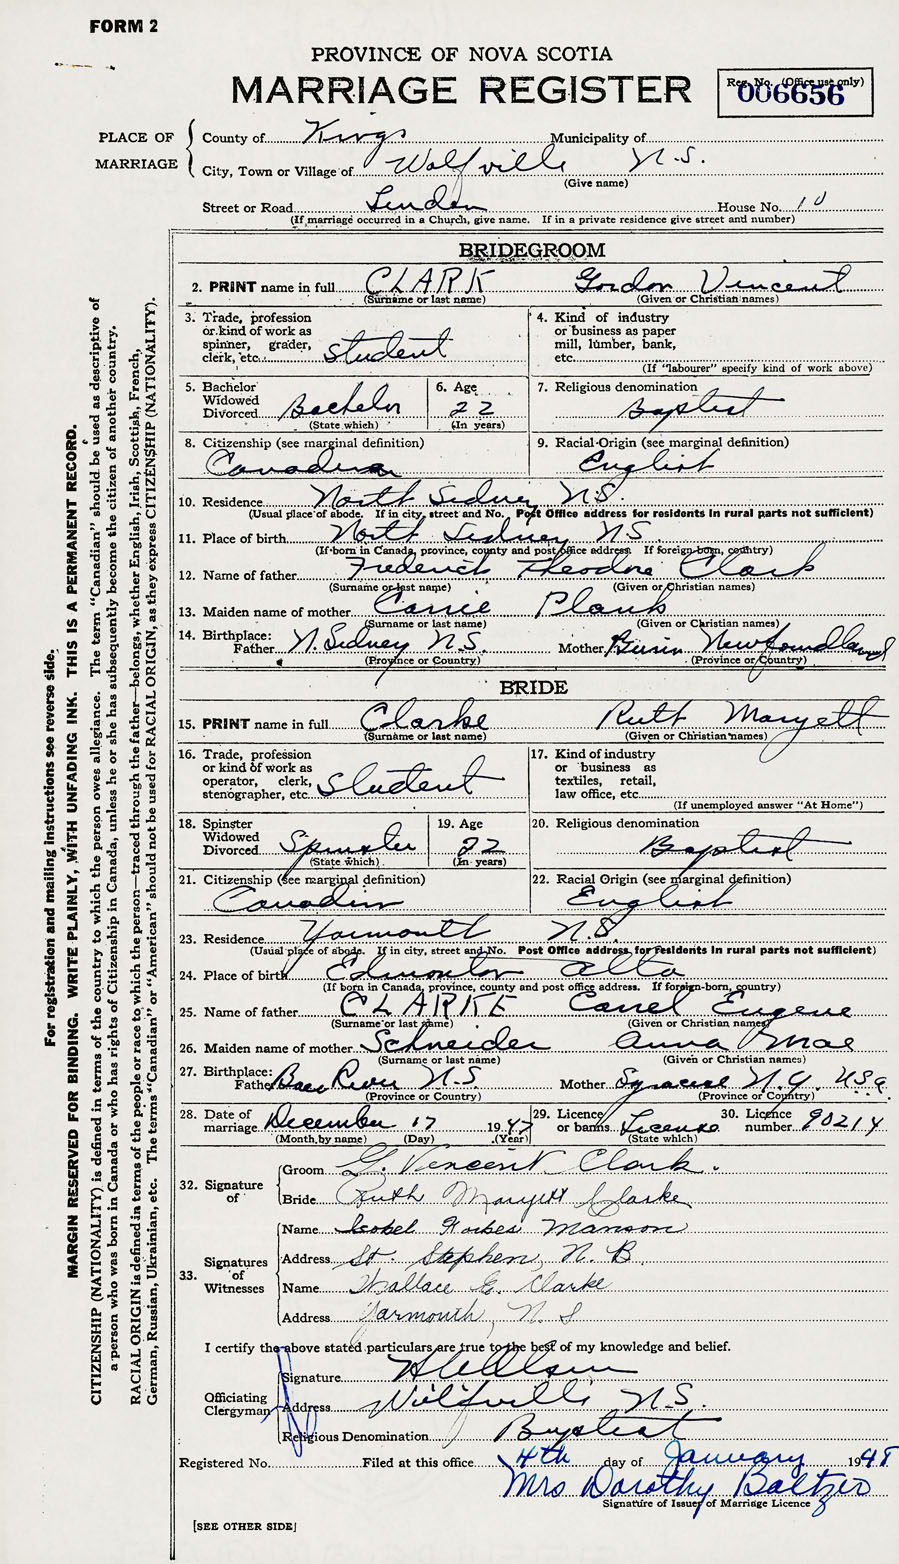 FORM 2
PROVINCE OF NOVA SCOTIA
MARRIAGE REGISTER
Reg. No. (Office use only)
006656
PLACE OF MARRIAGE
County of Kings Municipality of
City, Town or Village of Wolfville N.S.
(Give name)
Street or Road Linden House No. 10
(If marriage occurred in a Church, give name. If in a private residence give street and number)
BRIDEGROOM
2. PRINT name in full CLARK Gordon Vincent
(Surname or last name) (Given or Christian names)
3. Trade, profession or kind of work as spinner, grader, clerk, etc. student
4. Kind of industry or business as paper mill, lumber, bank, etc.
(If "labourer" specify kind of work above)
5. Bachelor Widowed Divorced Bachelor
(State which)
6. Age 22
(In years)
7. Religious denomination Baptist
8. Citizenship (see marginal definition) Canadian
9. Racial Origin (see marginal definition) English
10. Residence North Sidney N.S.
(Usual place of abode. If in city, street and No. Post Office address for residents in rural parts not sufficient)
11. Place of birth North Sidney NS
(If born in Canada, province, county and post office address. If foreign-born, country)
12. Name of father Frederick Theodore Clark
(Surname or last name) (Given or Christian names)
13. Maiden name of mother Carrie Plank
(Surname or last name) (Given or Christian names)
14. Birthplace: Father N. Sidney N.S. Mother Burin Newfoundland
(Province or Country) (Province or Country)
BRIDE
15. PRINT name in full Clarke Ruth Maryett
(Surname or last name) (Given or Christian names)
16. Trade, profession or kind of work as operator, clerk, stenographer, etc. Student
17. Kind of industry or business as textiles, retail, law office, etc.
(If unemployed answer "At Home")
18. Spinster Widowed Divorced Spinster
(State which)
19. Age 22
(In years)
20. Religious denomination Baptist
21. Citizenship (see marginal definition) Canadian
22. Racial Origin (see marginal definition) English
23. Residence Yarmouth N.S.
(Usual place of abode. If in city, street and No. Post Office address for residents in rural parts not sufficient)
24. Place of birth Edmonton Alta
(If born in Canada, province, county and post office address. If foreign-born, country)
25. Name of father CLARKE Carrel Eugene
(Surname or last name) (Given or Christian names)
26. Maiden name of mother Schneider Anna Mae
(Surname or last name) (Given or Christian names)
27. Birthplace: Father Bear River N.S. Mother Syracuse N.Y. U.S.a.
(Province or Country) (Province or Country)
28. Date of marriage December 17 1947
(Month by name) (Day) (Year)
29. Licence or banns License
(State which)
30. Licence number 90214
32. Signature of
Groom G. Vincent Clark.
Bride Ruth Maryett Clarke
33. Signatures of Witnesses
Name Isobel Forbes Manson
Address St. Stephen, N.B.
Name Wallace E. Clarke
Address Yarmouth, N.S
I certify the above stated particulars are true to the best of my knowledge and belief.
Officiating Clergyman
Signature
Address Wolfville N.S.
Religious Denomination Baptist
Registered No. Filed at this office 4th day of January 1948
Mrs Dorothy Baltzer
Signature of Issuer of Marriage Licence
[SEE OTHER SIDE]
For registration and mailing instructions see reverse side.
MARGIN RESERVED FOR BINDING. WRITE PLAINLY, WITH UNFADING INK. THIS IS A PERMANENT RECORD.
CITIZENSHIP (NATIONALITY) is defined in terms of the country to which the person owes allegiance. The term "Canadian" should be used as descriptive of
a person who was born in Canada or who has rights of Citizenship in Canada, unless he or she has subsequently become the citizen of another country.
RACIAL ORIGIN is defined in terms of the people or race to which the person—traced through the father—belongs, whether English, Irish, Scottish, French,
German, Russian, Ukrainian, etc. The terms "Canadian" or "American" should not be used for RACIAL ORIGIN, as they express CITIZENSHIP (NATIONALITY).